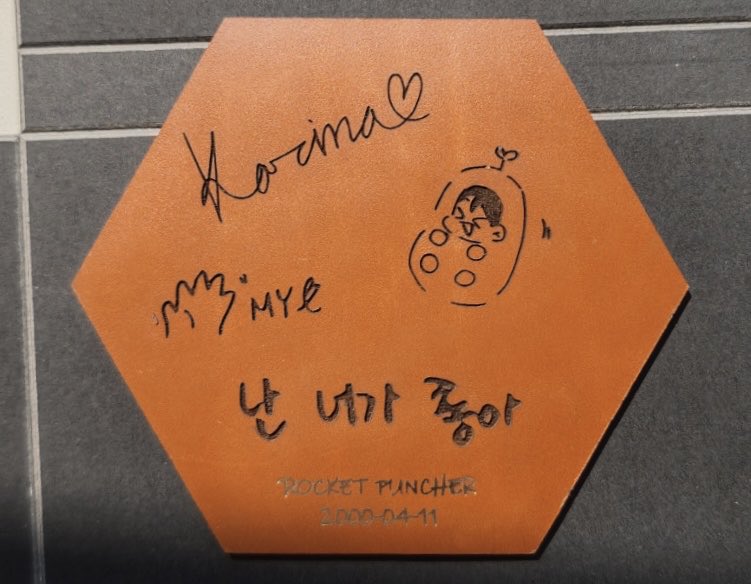 Karina♡
MY
난 너가 좋아
ROCKET PUNCHER
2000-04-11